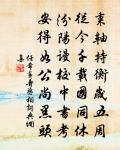 秉軸持衡歲五周
從今千載國同休
汾陽謾校中書考
安得如公尚黑頭
任希夷壽丞相詞典網
集